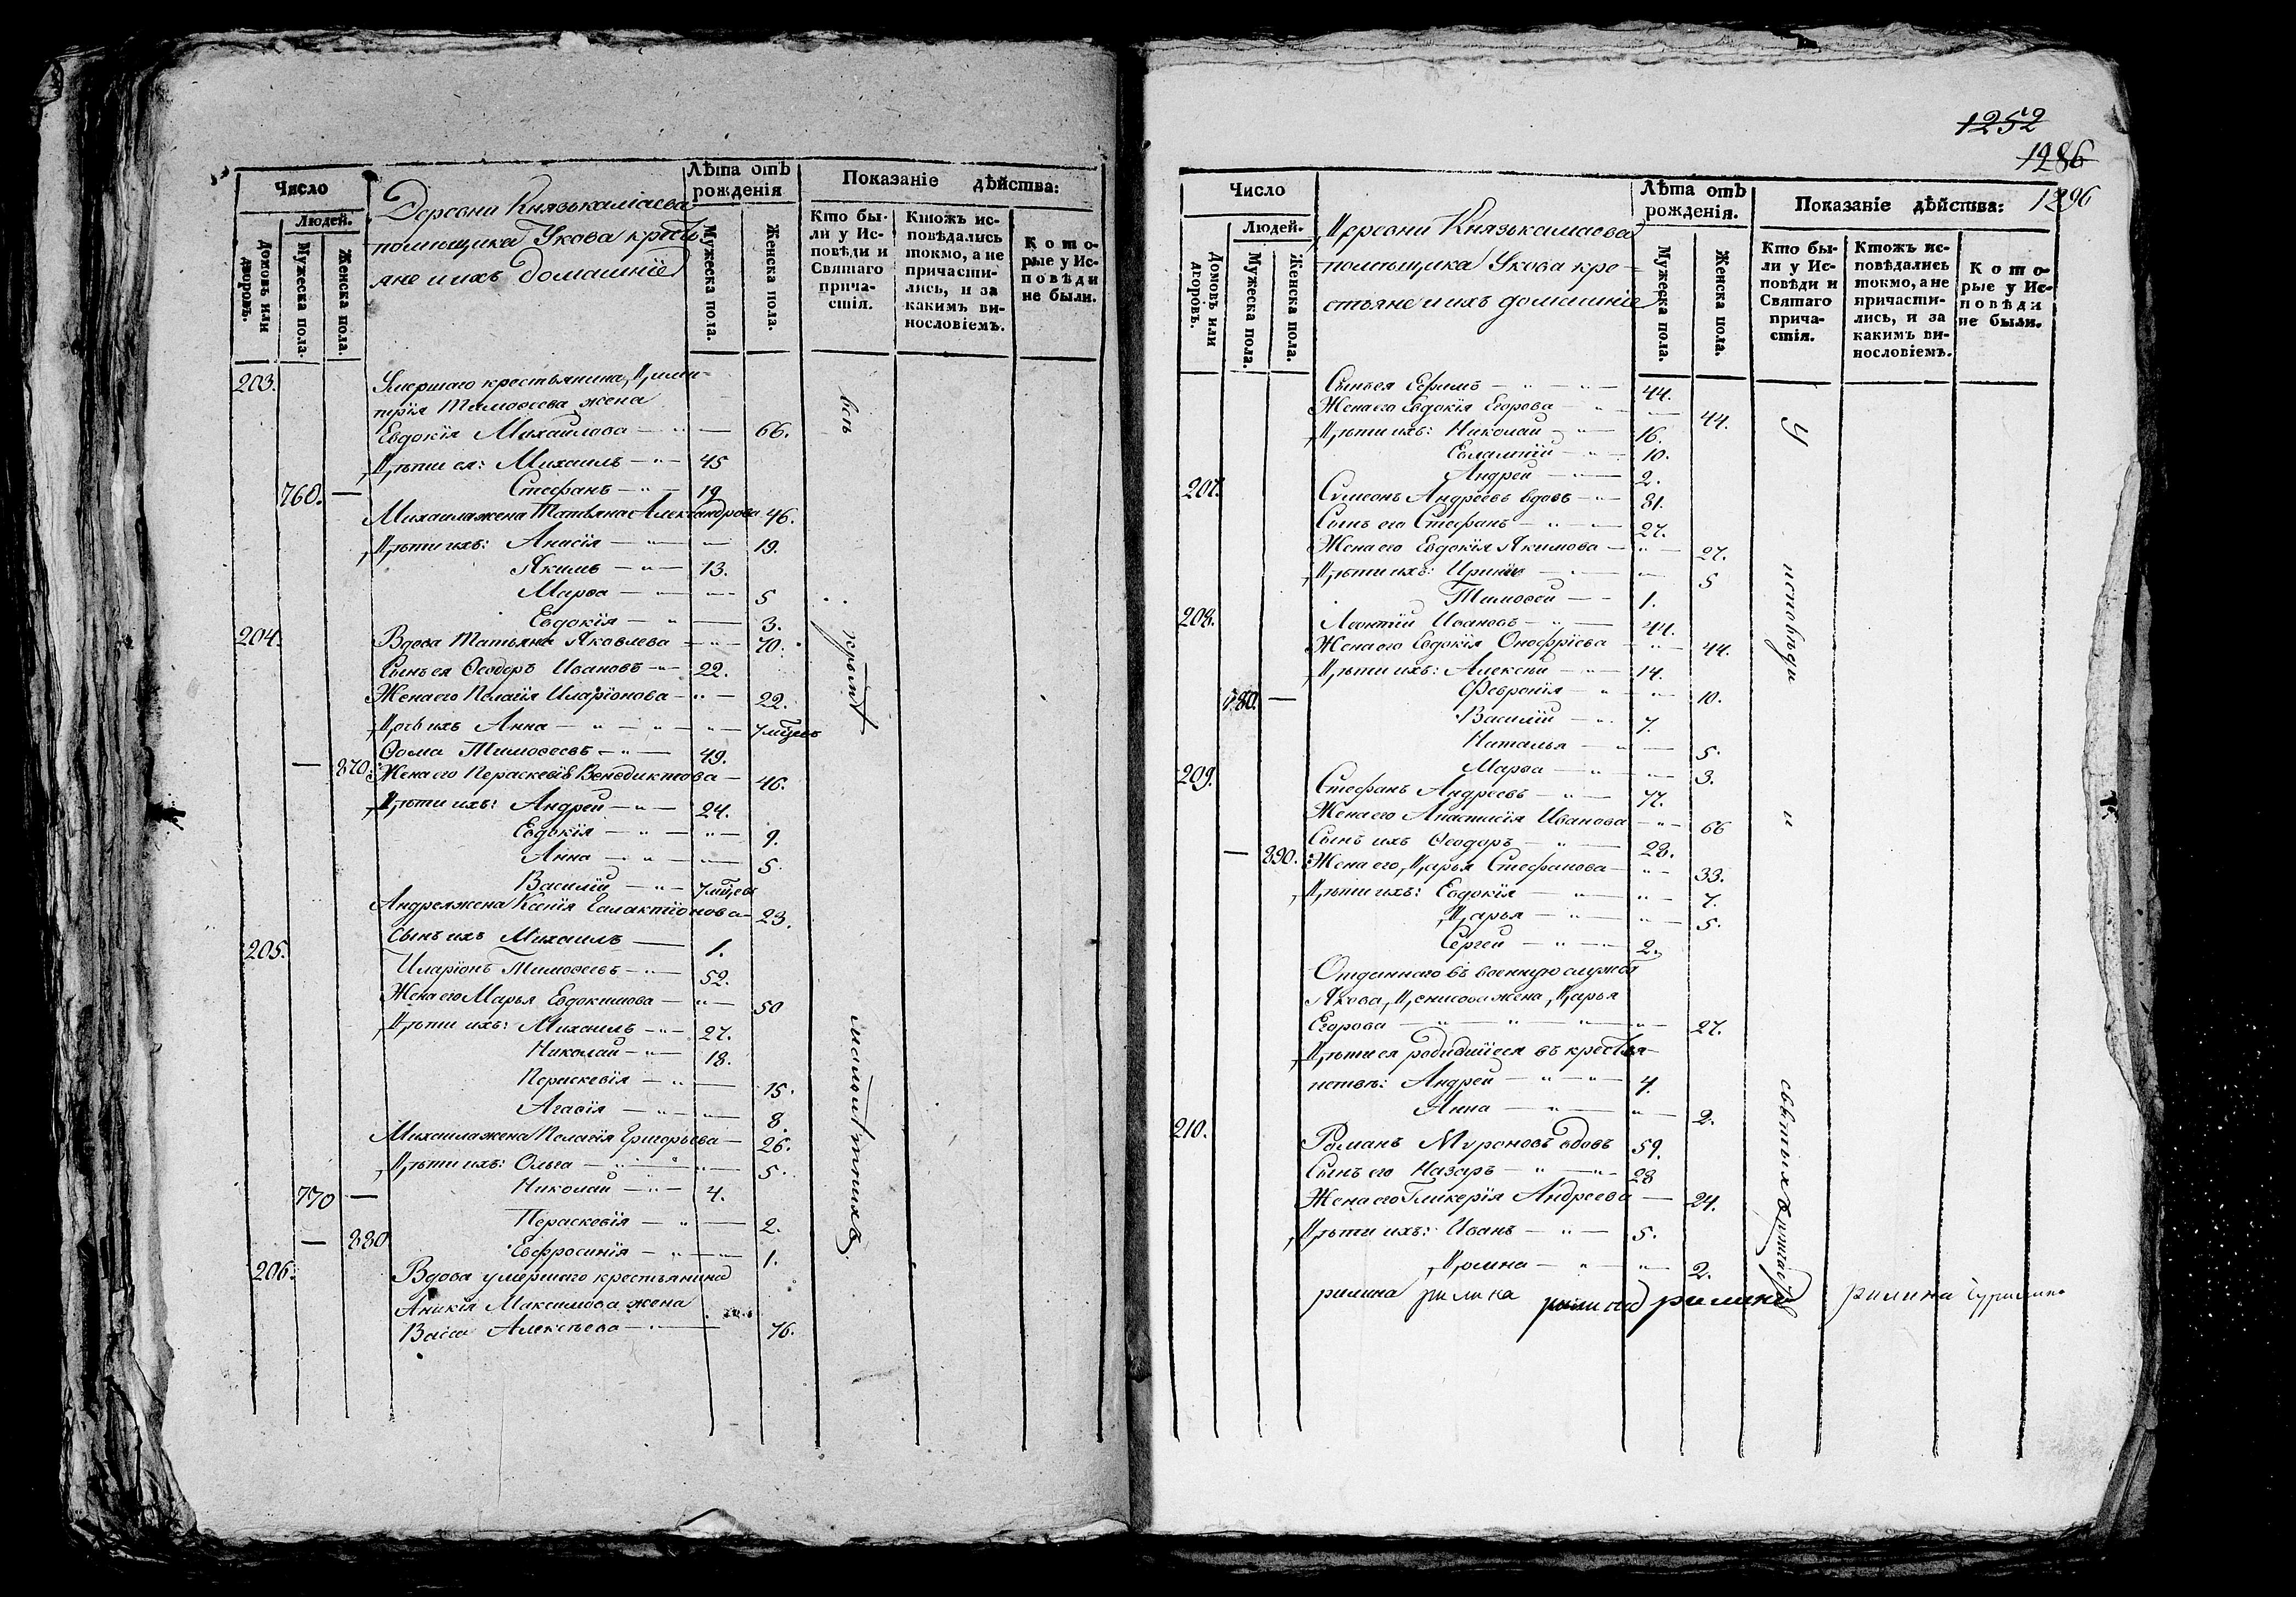 Число
Людей.
Домовъ или дворовъ.
Мужеска пола.
Женска пола.
Деревни Князькамаева
помѣщика Укова кресть
яне и ихъ домашніе
Лѣта отъ
рожденія
Мужеска пола.
Женска пола.
Показаніе дѣйства:
Кто бы-
ли у Ис-
повѣди и
Святаго
прича-
стія.
Ктожъ ис-
повѣдались
токмо, а не
причасти-
лись, и за
какимъ ви-
нословіемъ.
Кото-
рые у Ис-
повѣди
не были.
203. Умершаго крестьянина Дими-
трія Тимоѳеева жена
Евдокія Михайлова — " — 66.
Дѣти ея: Михаилъ — " — 45
760. — Стефанъ — " — 19
Михаила жена Татьяна Александрова 46.
Дѣти ихъ: Анисія — " — 19.
Якимъ — " — 13.
Марѳа — " — 5
Евдокія — " — 3.
204. Вдова Татьяна Яковлева — " — 70.
Сынъ ея Ѳеодоръ Ивановъ — " — 22.
Жена его Пелагія Иларіонова — " — 22.
Дочь ихъ Анна — " — " — 7 мцевъ
Ѳома Тимоѳеевъ — " — 49.
— 870. Жена его Параскевія Венедиктова — 46.
Дѣти ихъ: Андрей — " — 24.
Евдокія — " — " — 9.
Анна — " — 5.
Василій — " — 7 мцевъ
Андрея жена Ксенія Галактіонова — 23.
Сынъ ихъ Михаилъ — 1.
205. Иларіонъ Тимоѳеевъ — " — 52.
Жена его Марья Евдокимова — " — 50
Дѣти ихъ: Михаилъ — " — 27.
Николай — " — 18.
Параскевія — " — 15.
Агаѳія — " — 8.
Михаила жена Пелагія Григорьева — 26.
Дѣти ихъ: Ольга — " — " — 5.
770 — Николай — " — 4.
Параскевія — " — 2.
— 880 Евфросинія — " — 1.
206. Вдова умершаго крестьянина
Аникія Максимова жена
Васса Алексѣева — " — 76.
всѣ
1252
1286
1296
Число
Людей.
Домовъ или дворовъ.
Мужеска пола.
Женска пола.
Деревни Князькамаева
помѣщика Укова кре-
стьяне и ихъ домашніе
Лѣта отъ
рожденія.
Мужеска пола.
Женска пола.
Показаніе дѣйства:
Кто бы-
ли у Ис-
повѣди и
Святаго
прича-
стія.
Ктожъ ис-
повѣдались
токмо, а не
причасти-
лись, и за
какимъ ви-
нословіемъ.
Кото-
рые у Ис-
повѣди
не были.
Сынъ ея Ефимъ — " — " — 44.
Жена его Евдокія Егорова — " — 44.
Дѣти ихъ: Николай — " — 16.
Евлампій — " — 10.
Андрей — " — 2.
207. Сѵмеонъ Андреевъ вдовъ — " — 81.
Сынъ его Стефанъ — " — 27.
Жена его Евдокія Якимова — " — 27.
Дѣти ихъ: Ирина — " — 5
Тимоѳей — 1.
208. Леонтій Ивановъ — " — 44.
Жена его Евдокія Онофріева — " — 44.
Дѣти ихъ: Алексѣй — " — 14.
780. — Февронія — " — 10.
Василій — " — 7.
Наталья — " — 5.
Марѳа — " — 3.
209. Стефанъ Андреевъ — " — 77.
Жена его Анастасія Иванова — " — 66
Сынъ ихъ Ѳеодоръ — " — 28.
— 890. Жена его Дарья Стефанова — " — 33.
Дѣти ихъ: Евдокія — " — 7.
Дарья — " — " — 5.
Сергей — " — 2.
Отданнаго въ военную службу
Якова Денисова жена Дарья
Егорова — " — " — " — 27.
Дѣти ея родившіеся въ крестья-
нствѣ: Андрей — " — " — 4.
Анна — " — " — 2.
210. Романъ Мироновъ вдовъ 59.
Сынъ его Назаръ — " — " — 28
Жена его Гликерія Андреева — 24.
Дѣти ихъ: Иванъ — " — 5.
Домна — " — " — 2.
У
исповѣди
и
святыхъ